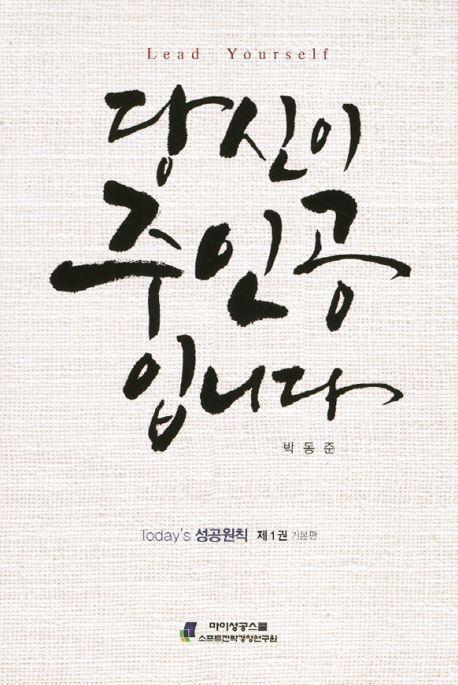 Lead Yourself
당신이
주인공
입니다
박동준
Today's 성공원칙 제1권 기본편
마이성공스쿨
소프트전략경영연구원